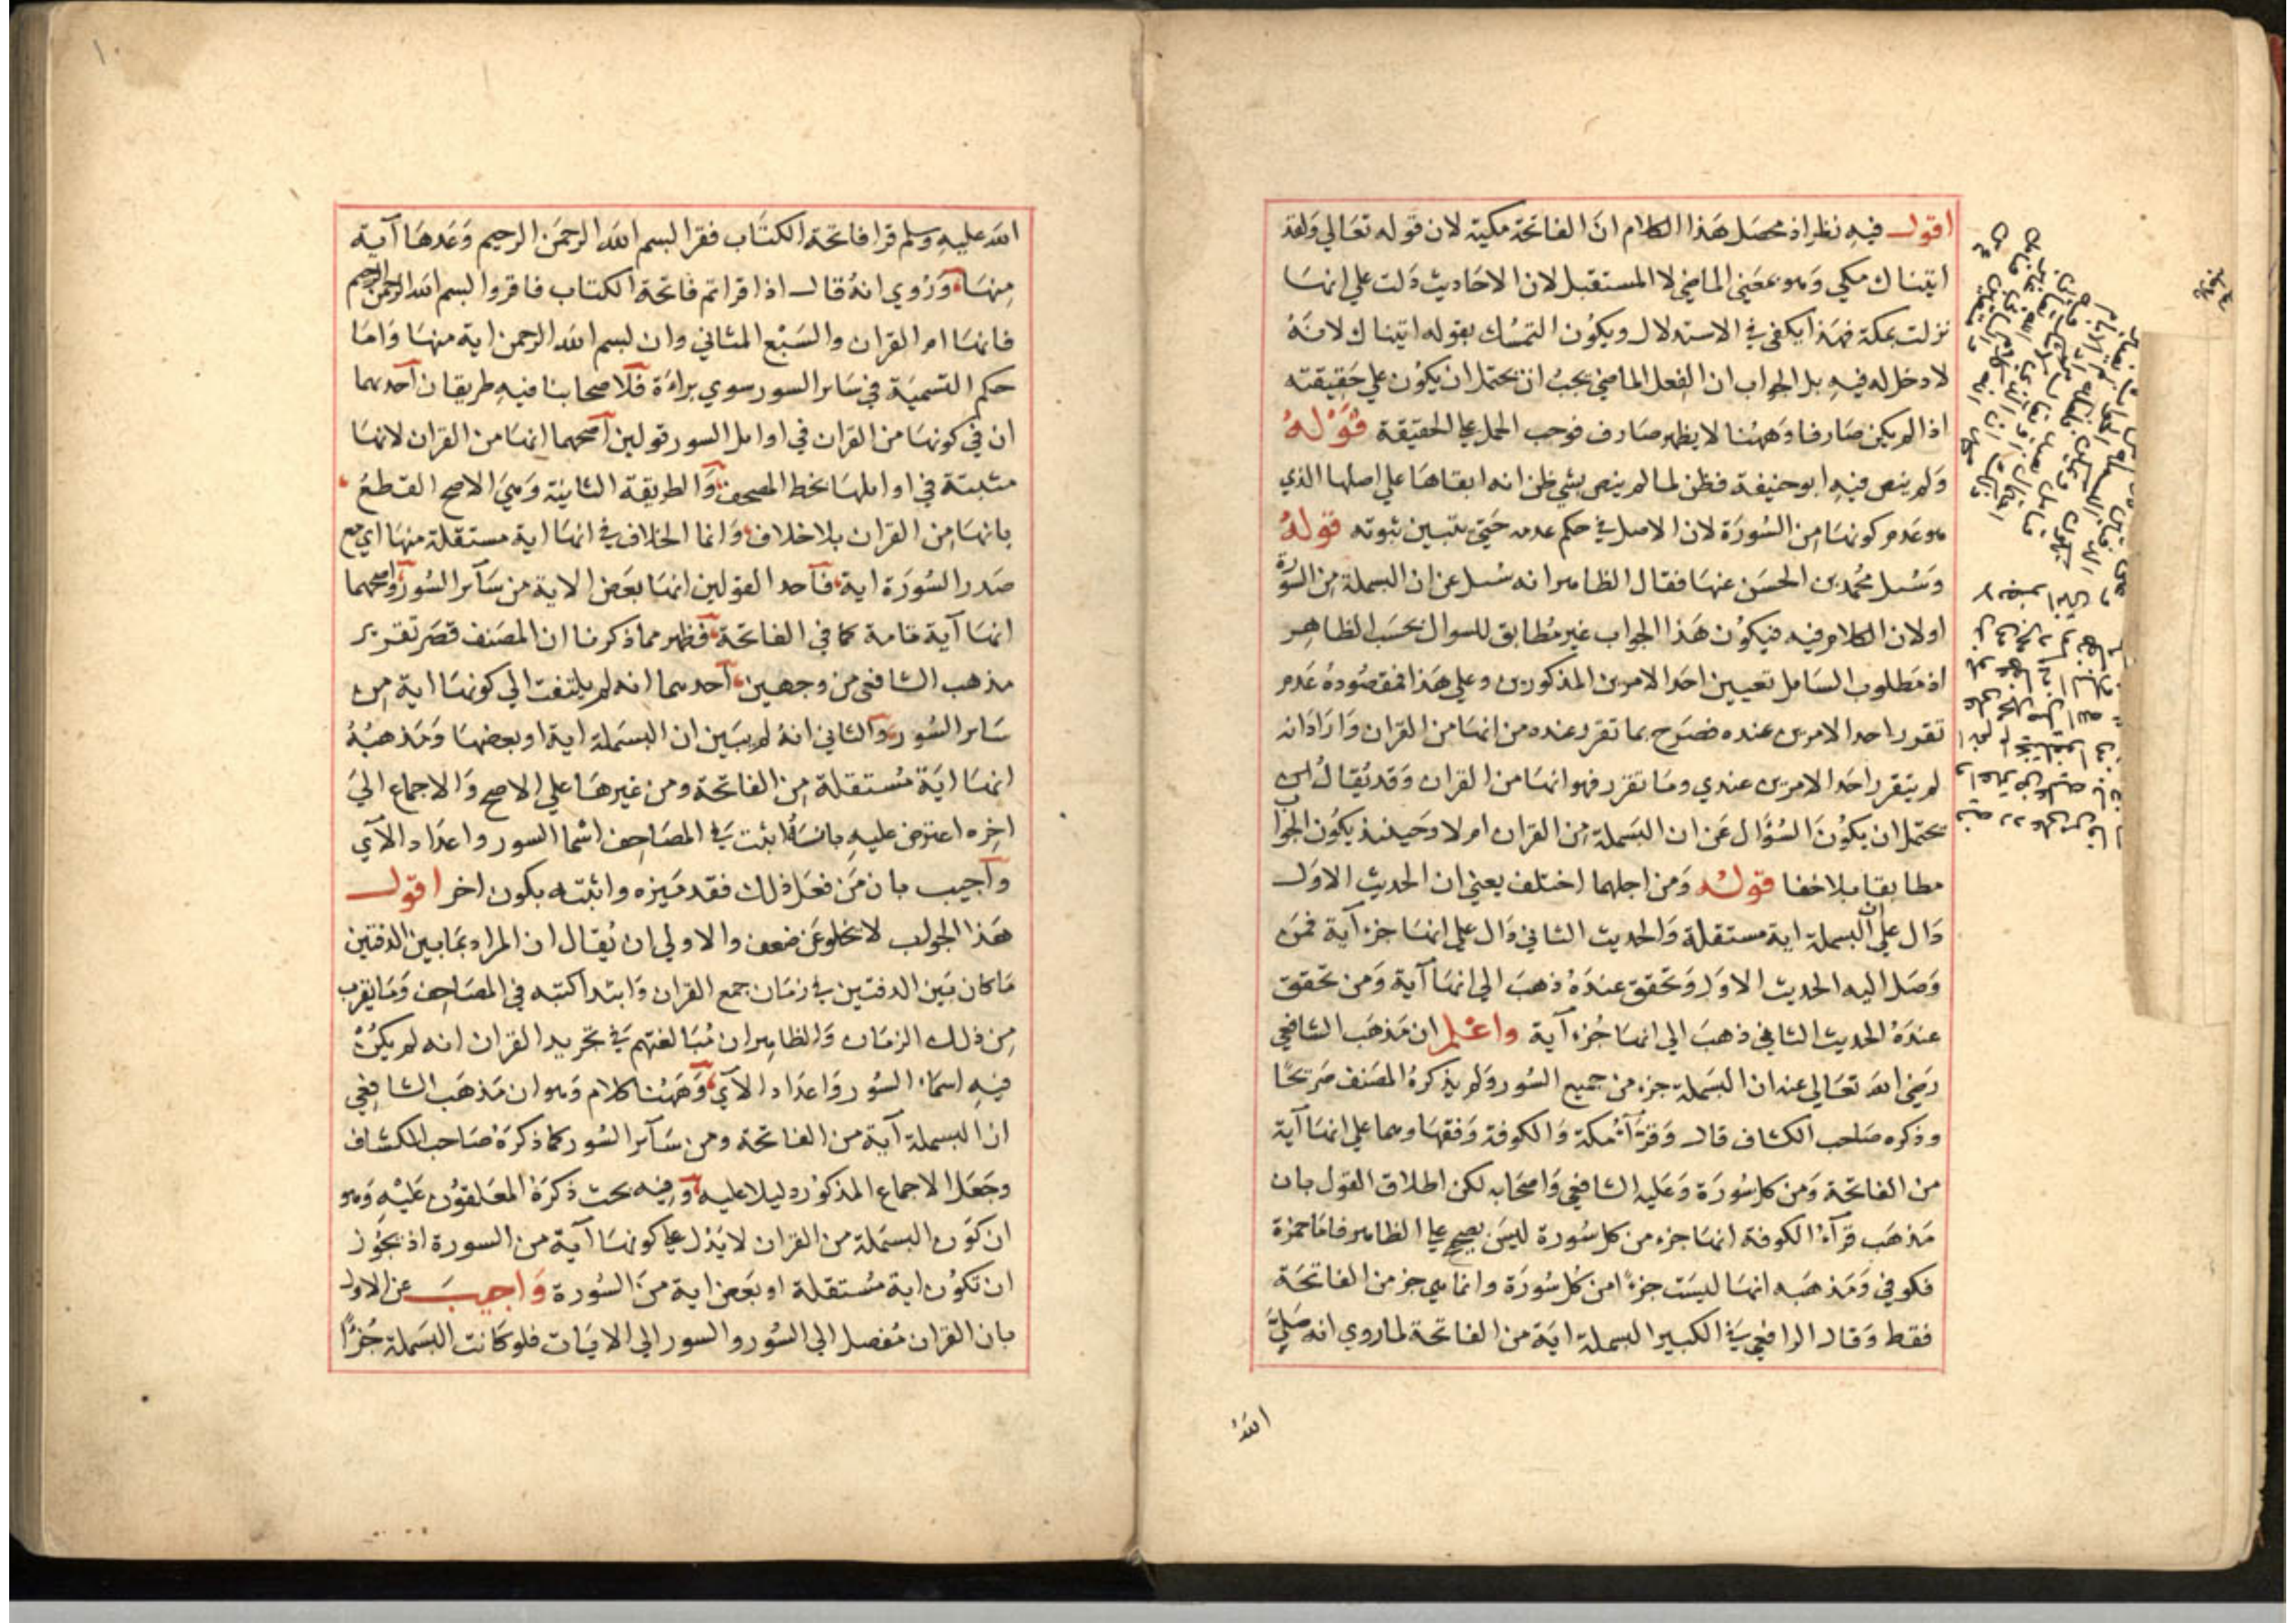 اقول فيه نظر اذ محصل هذا الكلام ان الفاتحة مكية لان قوله تعالي ولقد
اتيناك مكي وهو بمعني الماضي لا المستقبل لان الاحاديث دلت علي انها
نزلت بمكة فهذا يكفي في الاستدلال ويكون التمسك بقوله اتيناك لانه
لا دخل له فيه بل الجواب ان الفعل الماضي يجب ان يحتمل ان يكون علي حقيقته
اذا لم يكن صارفا وههنا لا يظهر صارف فوجب الحمل علي الحقيقة قوله
ولم ينص فيه ابو حنيفة فظن لما لم ينص بشي ظن انه ابقاها علي اصلها الذي
هو عدم كونها من السورة لان الاصل في حكم عدمه حتي يتبين ثبوته قوله
وسئل محمد بن الحسن عنها فقال الظاهر انه سئل عن ان البسملة من السورة
او لان الكلام فيه فيكون هذا الجواب غير مطابق للسوال بحسب الظاهر
اذ مطلوب السامل تعيين احد الامرين المذكورين وعلي هذا فمقصوده عدم
تقرر احد الامرين عنده فصرح بما تقرر عنده من انها من القران واراد انه
لم يتقرر احد الامرين عندي وما تقرر فهو انها من القران وقد يقال
يحتمل ان يكون السؤال عن ان البسملة من القران ام لا وحينئذ يكون الجواب
مطابقا بلا خفا قوله ومن اجلهما اختلف يعني ان الحديث الاول
دال علي ان البسملة اية مستقلة والحديث الثاني دال علي انها جزء آية فمن
وصل اليه الحديث الاول وتحقق عنده ذهب الي انها آية ومن تحقق
عنده الحديث الثاني ذهب الي انها جزء آية واعلم ان مذهب الشافعي
رضي الله تعالي عنه ان البسملة جزء من جميع السور ولم يذكره المصنف صريحا
وذكره صاحب الكشاف قال وقرآء مكة والكوفة وفقهاوهما علي انها آية
من الفاتحة ومن كل سورة وعليه الشافعي واصحابه لكن اطلاق القول بان
مذهب قرآء الكوفة انها جزء من كل سورة ليس بصحيح علي الظاهر فان حمزة
فكوفي ومذهبه انها ليست جزءا من كل سورة وانما هي جز من الفاتحة
فقط وقال الرافعي في الكبير البسملة اية من الفاتحة لما روي انه صلي
الله
الله عليه وسلم قرا فاتحة الكتاب فقرا بسم الله الرحمن الرحيم وعدها آية
منها وروي انه قال اذا قراتم فاتحة الكتاب فاقروا بسم الله الرحمن الرحيم
فانها ام القران والسبع المثاني وان بسم الله الرحمن اية منها واما
حكم التسمية في سائر السور سوي براءة فلاصحابنا فيه طريقان احدهما
ان في كونها من القران في اوائل السور قولين اصحهما انها من القران لانها
مثبتة في اوائلها بخط المصحف والطريقة الثانية وهي الاصح القطع
بانها من القران بلا خلاف وانما الخلاف في انها اية مستقلة منها ام هي مع
صدر السورة اية فاحد القولين انها بعض الاية من سآئر السور واصحهما
انها آية تامة كما في الفاتحة فظهر مما ذكرنا ان المصنف قصر تقرير
مذهب الشافعي من وجهين احدهما انه لم يلتفت الي كونها اية من
سائر السور والثاني انه لم يبين ان البسملة اية او بعضها ومذهبه
انها اية مستقلة من الفاتحة ومن غيرها علي الاصح والاجماع الي
اخره اعترض عليه بانه اثبت في المصاحف اسما السور واعداد الآي
واجيب بان من فعل ذلك فقد ميزه واثبته بكون اخر اقول
هذا الجواب لا يخلو عن ضعف والاولي ان يقال ان المراد بما بين الدفتين
ما كان بين الدفتين في زمان جمع القران وابتدا كتبه في المصاحف وما يقرب
من ذلك الزمان والظاهر ان مبالغتهم في تجريد القران انه لم يكن
فيه اسماء السور واعداد الآي وههنا كلام وهو ان مذهب الشافعي
ان البسملة آية من الفاتحة ومن سآئر السور كما ذكره صاحب الكشاف
وجعل الاجماع المذكور دليلا عليه وفيه بحث ذكره المعلقون عليه وهو
ان كون البسملة من القران لا يدل علي كونها آية من السورة اذ يجوز
ان تكون اية مستقلة او بعض اية من السورة واجيب عن الاول
بان القران مفصل الي السور والسور الي الايات فلو كانت البسملة جزءا